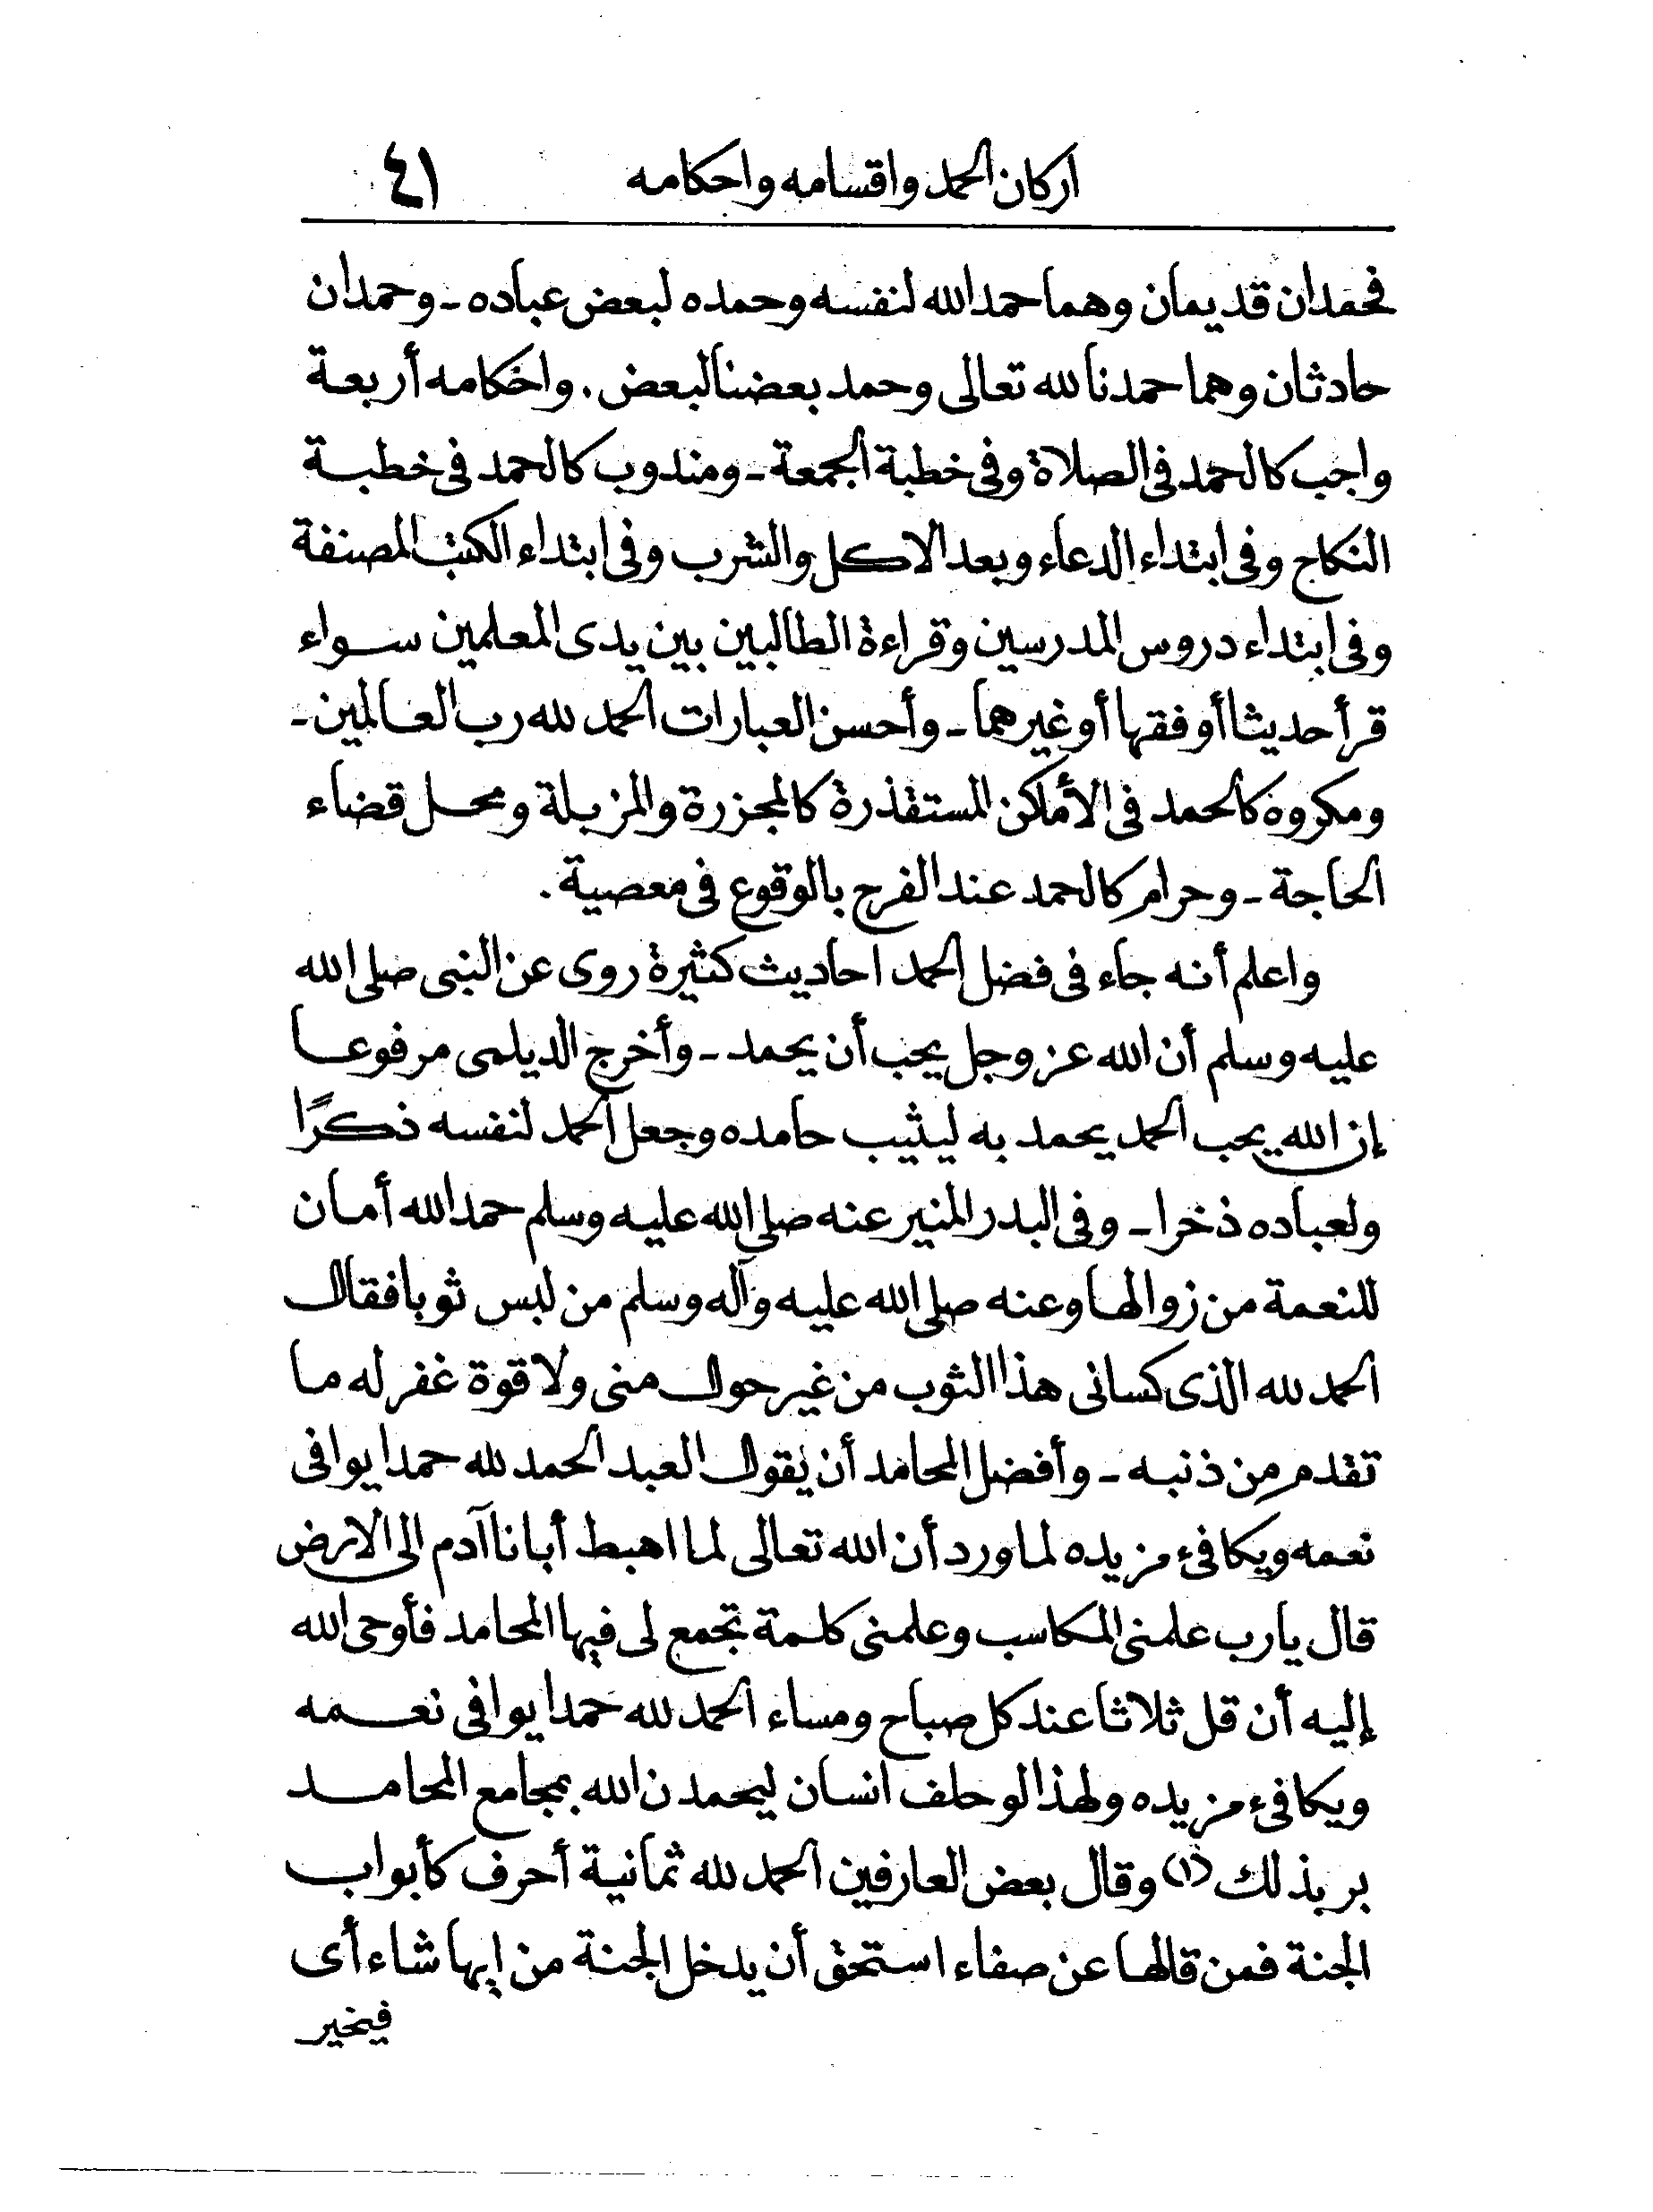 اركان الحمد واقسامه واحكامه ٤١
فحمدان قديمان وهما حمد الله لنفسه وحمده لبعض عباده - وحمدان
حادثان وهما حمدنا لله تعالى وحمد بعضنا لبعض . واحكامه أربعة
واجب كالحمد في الصلاة وفي خطبة الجمعة - ومندوب كالحمد في خطبة
النكاح وفي ابتداء الدعاء وبعد الاكل والشرب وفي ابتداء الكتب المصنفة
وفي ابتداء دروس المدرسين وقراءة الطالبين بين يدى المعلمين سواء
قرأ حديثا أو فقها أو غيرهما - وأحسن العبارات الحمد لله رب العالمين -
ومكروه كالحمد في الأماكن المستقذرة كالمجزرة والمزبلة ومحل قضاء
الحاجة - وحرام كالحمد عند الفرح بالوقوع في معصية .
واعلم أنه جاء في فضل الحمد احاديث كثيرة روى عن النبى صلى الله
عليه وسلم أن الله عز وجل يحب أن يحمد - وأخرج الديلمى مرفوعا
إن الله يحب الحمد يحمد به ليثيب حامده وجعل الحمد لنفسه ذكرًا
ولعباده ذخرا - وفي البدر المنير عنه صلى الله عليه وسلم حمد الله أمان
للنعمة من زوالها وعنه صلى الله عليه وآله وسلم من لبس ثوبا فقال
الحمد لله الذى كسانى هذا الثوب من غير حول منى ولا قوة غفر له ما
تقدم من ذنبه - وأفضل المحامد أن يقول العبد الحمد لله حمدا يوافى
نعمه ويكافئ مزيده لما ورد أن الله تعالى لما اهبط أبانا آدم الى الارض
قال يارب علمنى المكاسب وعلمنى كلمة تجمع لى فيها المحامد فأوحى الله
إليه أن قل ثلاثا عند كل صباح ومساء الحمد لله حمدا يوافى نعمه
ويكافئ مزيده ولهذا لو حلف انسان ليحمدن الله بمجامع المحامد
بر بذلك (١) وقال بعض العارفين الحمد لله ثمانية أحرف كأبواب
الجنة فمن قالها عن صفاء استحق أن يدخل الجنة من ايها شاء أى
فيخير